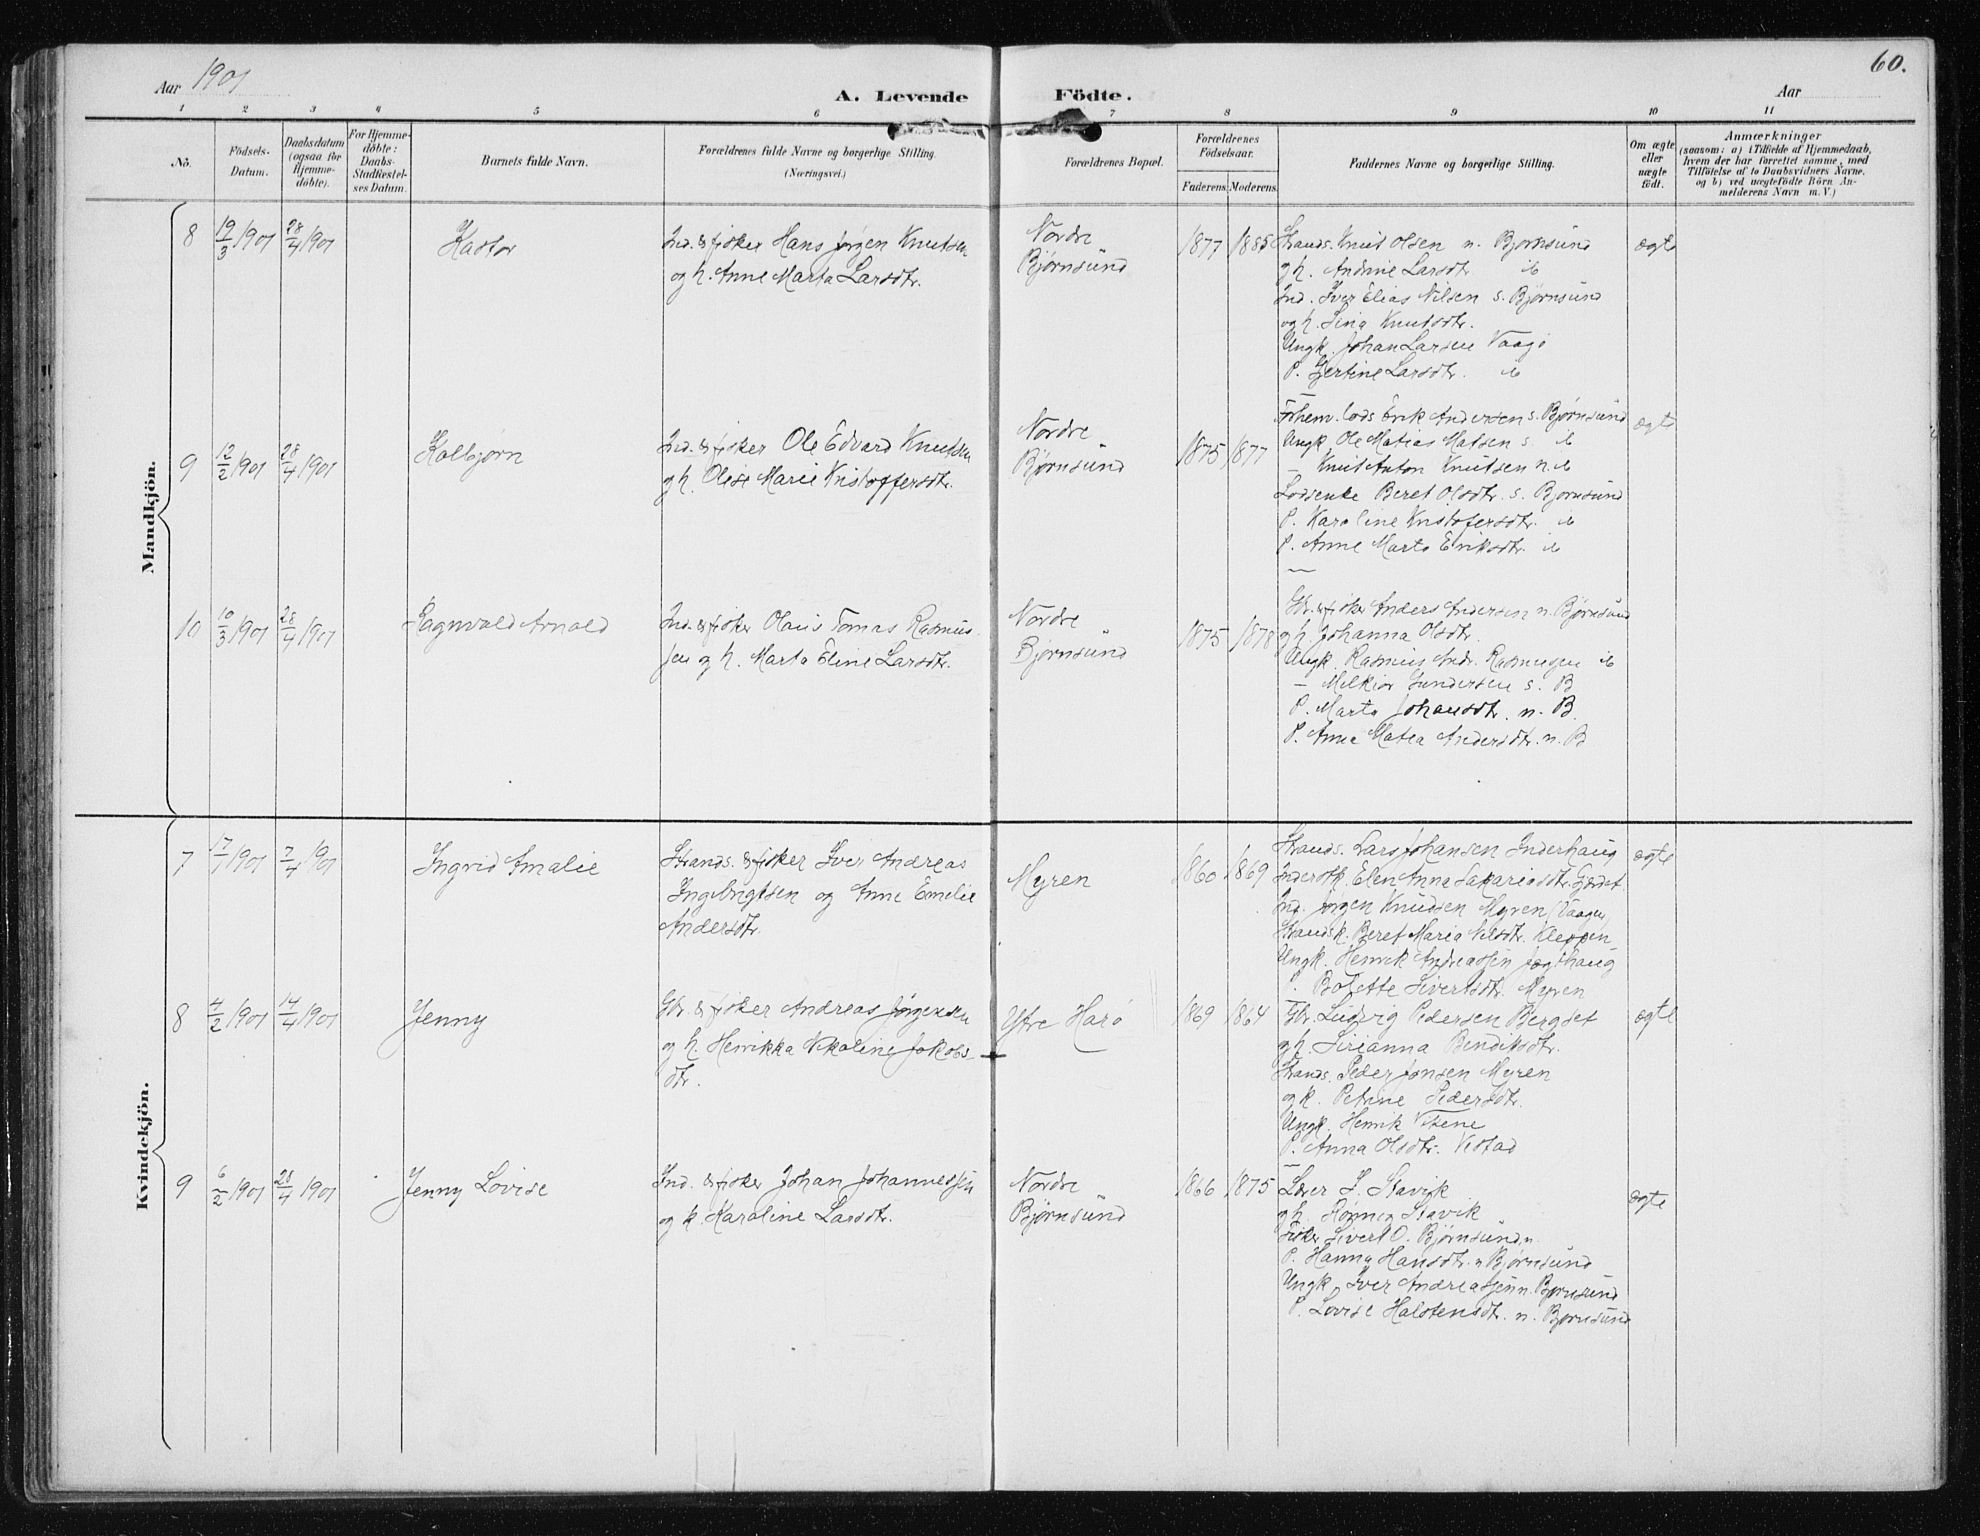 Aar 1901
A. Levende Födte.
60.
Aar
1 2 3 4 5 6 7 8 9 10 11
No.
Födsels-
Datum.
Daabsdatum
(ogsaa for
Hjemme-
döbte).
For Hjemme-
döbte:
Daabs-
Stadfestel-
ses Datum.
Barnets fulde Navn.
Forældrenes fulde Navne og borgerlige Stilling.
(Næringsvei.)
Forældrenes Bopæl.
Forældrenes
Födselsaar.
Faderens. Moderens.
Faddernes Navne og borgerlige Stilling.
Om ægte
eller
uægte
födt.
Anmærkninger
(saasom: a) i Tilfælde af Hjemmedaab,
hvem der har forrettet samme, med
Tilföielse af to Daabsvidners Navne,
og b) ved uægtefödte Börn An-
melderens Navn m. V.)
Mandkjön.
8
19/3 1901
28/4 1901
Kastor
Ind. & fisker Hans Jørgen Knutsen
og h. Anne Marta Larsdtr.
Nordre
Bjørnsund
1877 1885
Strands. Knut Olsen n. Bjørnsund
og h. Andrine Larsdtr ib
Ind. Iver Elias Nilsen s. Bjørnsund
og h. Lina Knutsdtr.
Ungk. Johan Larsen Vaagø
P. Gjertine Larsdtr. ib
ægte
9
12/2 1901
28/4 1901
Kolbjørn
Ind. & fisker Ole Edvard Knutsen
og h. Olise Marie Kristoffersdtr.
Nordre
Bjørnsund
1875 1877
Forhenv. Lods Erik Andersen s. Bjørnsund
Ungk. Ole Matias Matsen s. ib
— Knut Anton Knutsen n. ib
Lodsenke Beret Olsdtr. s. Bjørnsund
P. Karoline Kristofersdtr. ib
P. Anne Marta Eriksdtr. ib
ægte
10
10/3 1901
28/4 1901
Ragnvald Arnold
Ind. & fisker Olaus Tomas Rasmus-
sen og h. Marta Eline Larsdtr.
Nordre
Bjørnsund
1875 1878
Gbr. & fisker Anders Andersen n. Bjørnsund
og h. Johanna Olsdtr.
Ungk. Rasmus Andr. Rasmussen ib
— Melkior Gundersen s. B
P. Marta Johansdtr. n. B.
P. Anne Matea Andersdtr. n. B
Kvindekjön.
7
17/1 1901
7/4 1901
Ingrid Amalie
Strands. & fisker Iver Andreas
Ingebrigtsen og Anne Emelie
Andersdtr.
Myren
1860 1869
Strands. Lars Johansen Inderhaug
Inderstk. Elen Anna Sakariasdtr. Gjerdet
Ind. Jørgen Knudsen Myren (Vaagen)
Strandsk. Beret Maria Nilsdtr. Kleppen
Ungk. Henrik Andreassen Jægthaug
P. Bolette Sivertsdtr. Myren
ægte
8
4/2 1901
14/4 1901
Jenny
Gbr. & fisker Andreas Jørgensen
og h. Henrikka Nikoline Jakobs-
dtr.
Ytre Harø
1869 1864
Gbr. Ludvig Pedersen Bergset
og h. Sirianna Bendiksdtr.
Strands. Peder Jonsen Myren
og k. Petrine Pedersdtr.
Ungk. Henrik Visene
P. Anna Olsdtr. Vestad
ægte
9
6/2 1901
28/4 1901
Jenny Lovise
Ind. & fisker Johan Johannessen
og k. Karoline Larsdtr.
Nordre
Bjørnsund
1866 1875
Lærer S. Stavik
og h. Rønnug Stavik
Fisker Sivert O. Bjørnsund n.
P. Hanna Hansdtr. n Bjørnsund
Ungk. Iver Andreassen n. Bjørnsund
P. Lovise Halstensdtr. n. Bjørnsund
ægte